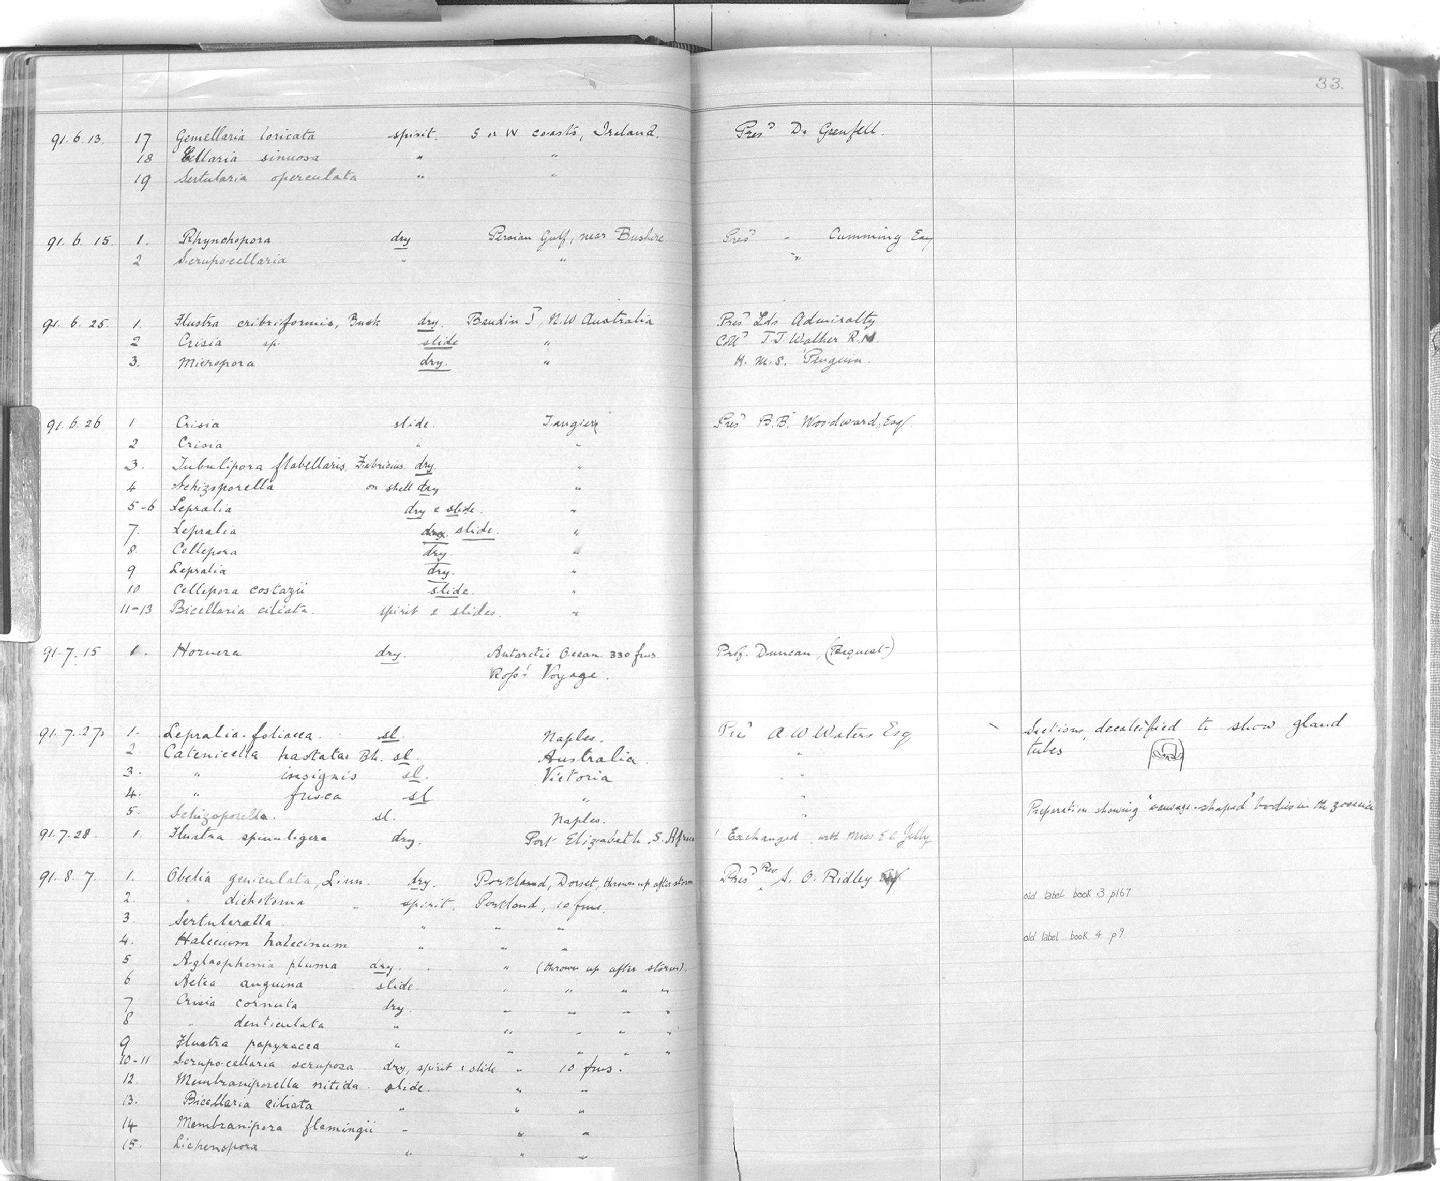 33.
91.6.13. 17 Gemellaria loricata spirit. S & W coasts, Ireland. Presd Dr Grenfell.
18 Cellaria sinuosa " "
19 Sertularia operculata " "
91.6.15. 1. Rhynchopora dry Persian Gulf, near Bushire Presd - Cumming Esq
2 Scrupocellaria " " "
91.6.25. 1. Flustra cribriformis, Busk dry. Baudin I, N.W. Australia Presd Lds Admiralty
2 Crisia sp. slide " Colld J.J. Walker R.N.
3. Micropora dry. " H.M.S. Penguin.
91.6.26 1 Crisia slide. Tangier Presd B.B. Woodward, Esq.
2 Crisia " "
3. Tubulipora flabellaris, Fabricius dry. "
4 Schizoporella on shell dry "
5-6 Lepralia dry & slide. "
7. Lepralia dry. slide. "
8. Cellepora dry. "
9 Lepralia dry. "
10 Cellepora costazii slide. "
11-13 Bicellaria ciliata. spirit & slides. "
91.7.15 1. Hornera dry. Antarctic Ocean 330 fms. Prof. Duncan, (Bequest)
Ross' Voyage.
91.7.27. 1. Lepralia foliacea. sl. Naples. Presd A W Waters Esq Sections, decalcified to show gland
tubes
2 Catenicella hastata Bk. sl. Australia. "
3. " insignis sl. Victoria "
4. " fusca sl " "
5. Schizoporella. sl. Naples. " Preparation showing "sausage-shaped" bodies in the zooecia
91.7.28 1. Flustra spinuligera dry. Port Elizabeth, S. Africa Exchanged with Miss E C Jelly
91.8.7. 1. Obelia geniculata, Linn. dry. Portland, Dorset, thrown up after storm Presd Rev S. O. Ridley
2. " dichotoma spirit. Portland, 10 fms. old label book 3 p167
3 Sertularella " " "
4. Halecium halecinum " " " old label book 4 p9
5 Aglaophenia pluma dry. " (thrown up after storm).
6 Aetea anguina slide " " " "
7 Crisia cornuta dry. " " " "
8 " denticulata " " " " "
9 Flustra papyracea " " " " "
10-11 Scrupocellaria scruposa dry, spirit & slide " 10 fms.
12. Membraniporella nitida slide. " "
13. Bicellaria ciliata " " "
14 Membranipora flemingii " " "
15. Lichenopora " " "